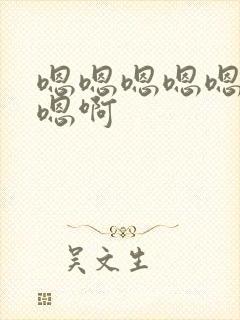 嗯嗯嗯嗯嗯
嗯啊
吴文生